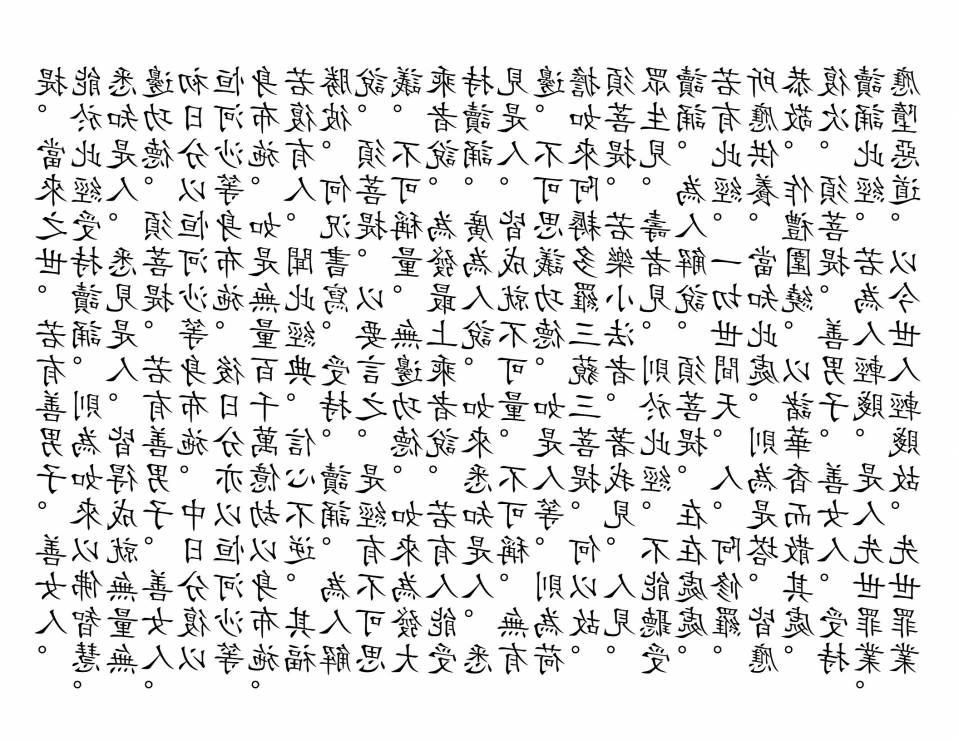 提。當來之世。若有善男子。善女人。
能於此經受持讀誦。則為如來以佛智慧。
悉知是人。悉見是人。皆得成就無量無
邊功德。須菩提。若有善男子。善女人。
初日分以恒河沙等身布施。中日分復以
恒河沙等身布施。後日分亦以恒河沙等
身布施。如是無量百千萬億劫以身布施。
若復有人。聞此經典。信心不逆。其福
勝彼。何況書寫。受持。讀誦。為人解
說。須菩提。以要言之。是經有不可思
議。不可稱量。無邊功德。如來為發大
乘者說。為發最上乘者說。若有人能受
持讀誦。廣為人說。如來悉知是人。悉
見是人。皆成就不可量。不可稱。無有
邊。不可思議功德。如是人等。則為荷
擔如來阿耨多羅三藐三菩提。何以故。
須菩提。若樂小法者。著我見。人見。
眾生見。壽者見。則於此經。不能聽受
讀誦。為人解說。須菩提。在在處處。
若有此經。一切世間天。人。阿修羅。
所應供養。當知此處。則為是塔。皆應
恭敬。作禮圍繞。以諸華香而散其處。
復次。須菩提。善男子。善女人。受持
讀誦此經。若為人輕賤。是人先世罪業。
應墮惡道。以今世人輕賤故。先世罪業